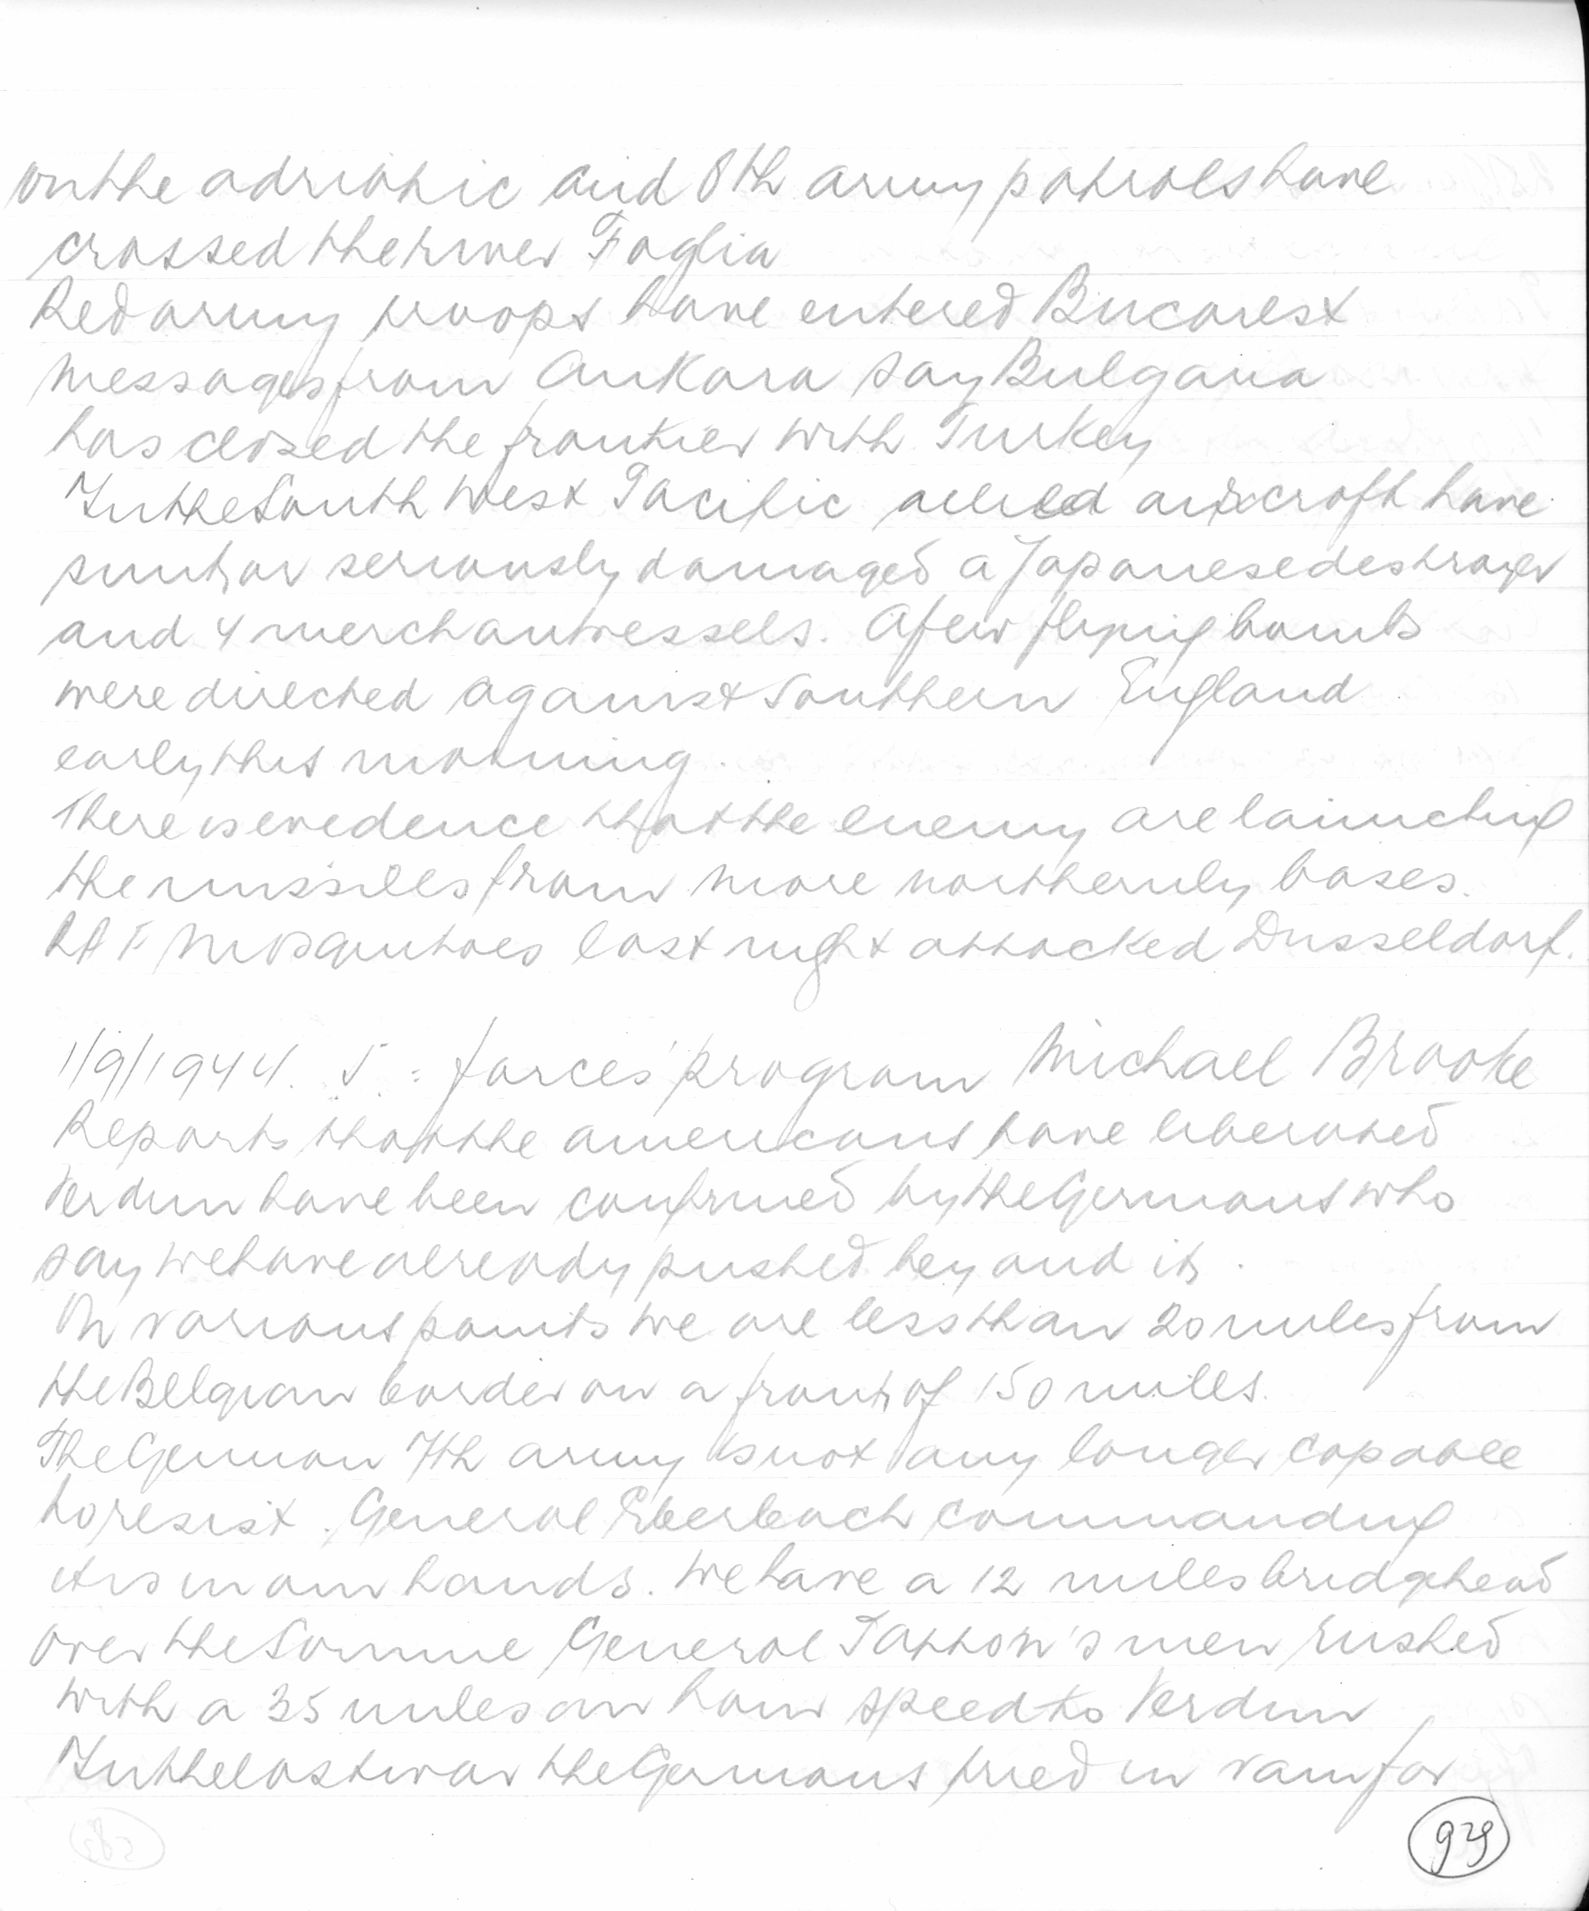 on the adriatic and 8th army patrols have
crossed the river Foglia
Red army troops have entered Bucarest
Messages from Ankara say Bulgaria
has closed the frontier with Turkey
In the South West Pacific allied aircraft have
sunk or seriously damaged a Japanese destroyer
and 4 merchantvessels. A few flying bombs
were directed against Southern England
early this morning.
There is evedence that the enemy are launching
the missiles from more northernly bases.
RAF Mosquitoes last night attacked Dusseldorf.
1/9/1944. 5 = forces' program Michael Brooke
Reports that the americans have liberated
Verdun have been confirmed by the Germans who
say we have already pushed beyond it.
On various points we are less than 20 miles from
the Belgian border on a front of 150 miles.
The German 7th army is not any longer capable
to resist. General Eberbach commanding
it is in our hands. We have a 12 miles bridgehead
over the Somme General Patton's men rushed
with a 35 miles an hour speed to Verdun
In the last war the Germans tried in vain for
929